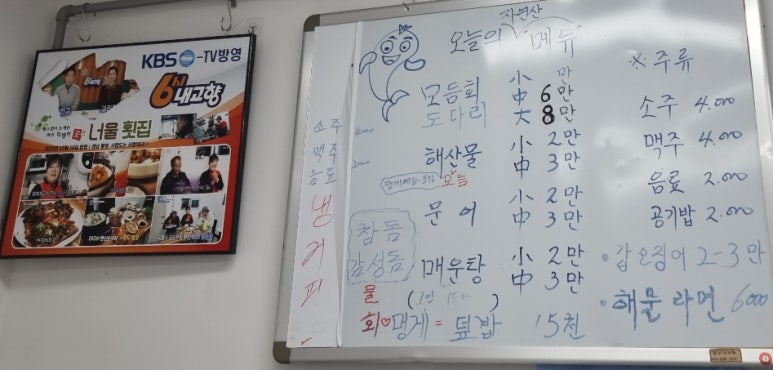 KBS -TV방영
6시
내고향
너울 횟집
자연산
오늘의 "메뉴"
모듬회 小 만
도다리 中 6만
大 8만
해산물 小 2만
모듬 中 3만
문어 小 2만
中 3만
참돔
감성돔
매운탕 小 2만
中 3만
물
회♡멍게 = 덮밥 15천
소주 4000
맥주
음료 2000
냉
커
피
※ 주류
소주 4.000
맥주 4.000
음료 2.000
공기밥 2.000
갑오징어 2-3만
해물라면 6000